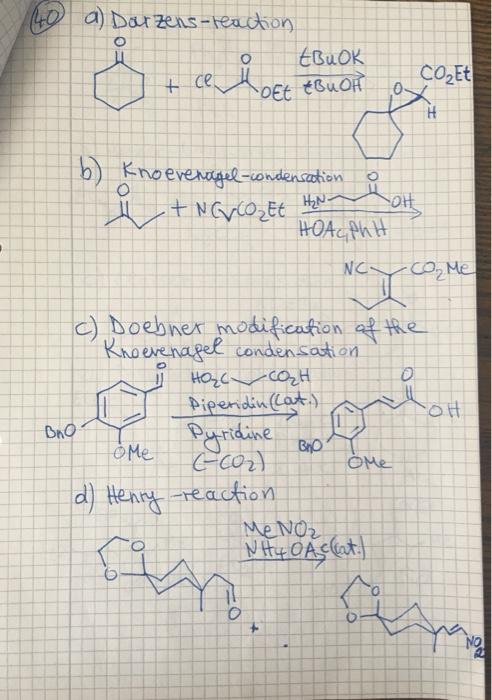 40 a) Darzens-reaction
O
+ Cl O OEt tBuOK tBuOH O CO2Et H
b) Knoevenagel-condensation
O + NC CO2Et H2N O OH HOAc, PhH
NC CO2Me
c) Doebner modification of the
Knoevenagel condensation
O HO2C CO2H O
Piperidin (cat.) OH
BnO OMe Pyridine BnO OMe
(-CO2)
d) Henry-reaction
MeNO2
NH4OAc (cat.)
O O O
O O NO2